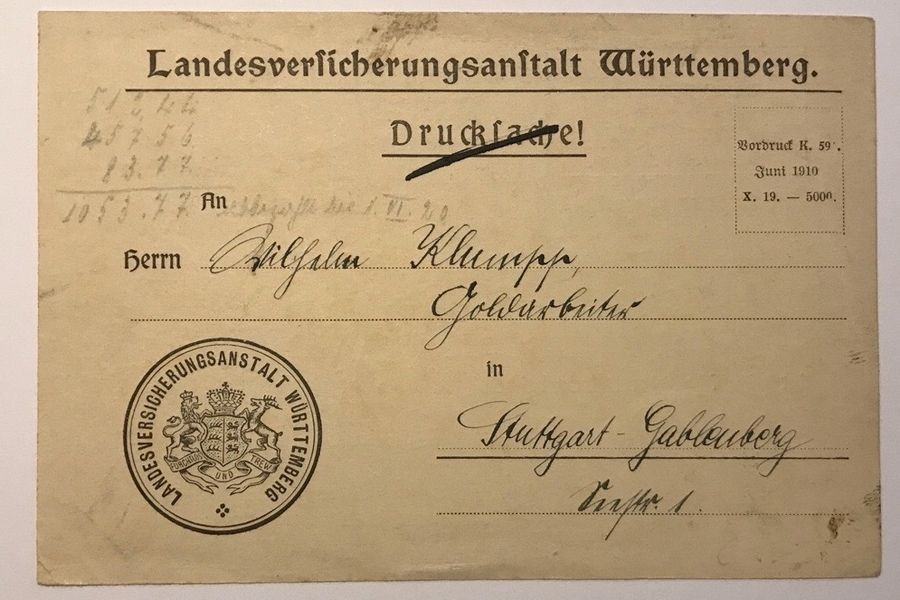 Landesversicherungsanstalt Württemberg.
Drucksache!
Vordruck K. 59.
Juni 1910
X. 19. — 5000.
83.77
1053.77
An
1. VI. 20
Herrn Wilhelm Klumpp,
Goldarbeiter
in
Stuttgart-Gablenberg
Seestr. 1.
LANDESVERSICHERUNGSANSTALT WÜRTTEMBERG
FURCHTLOS UND TREW